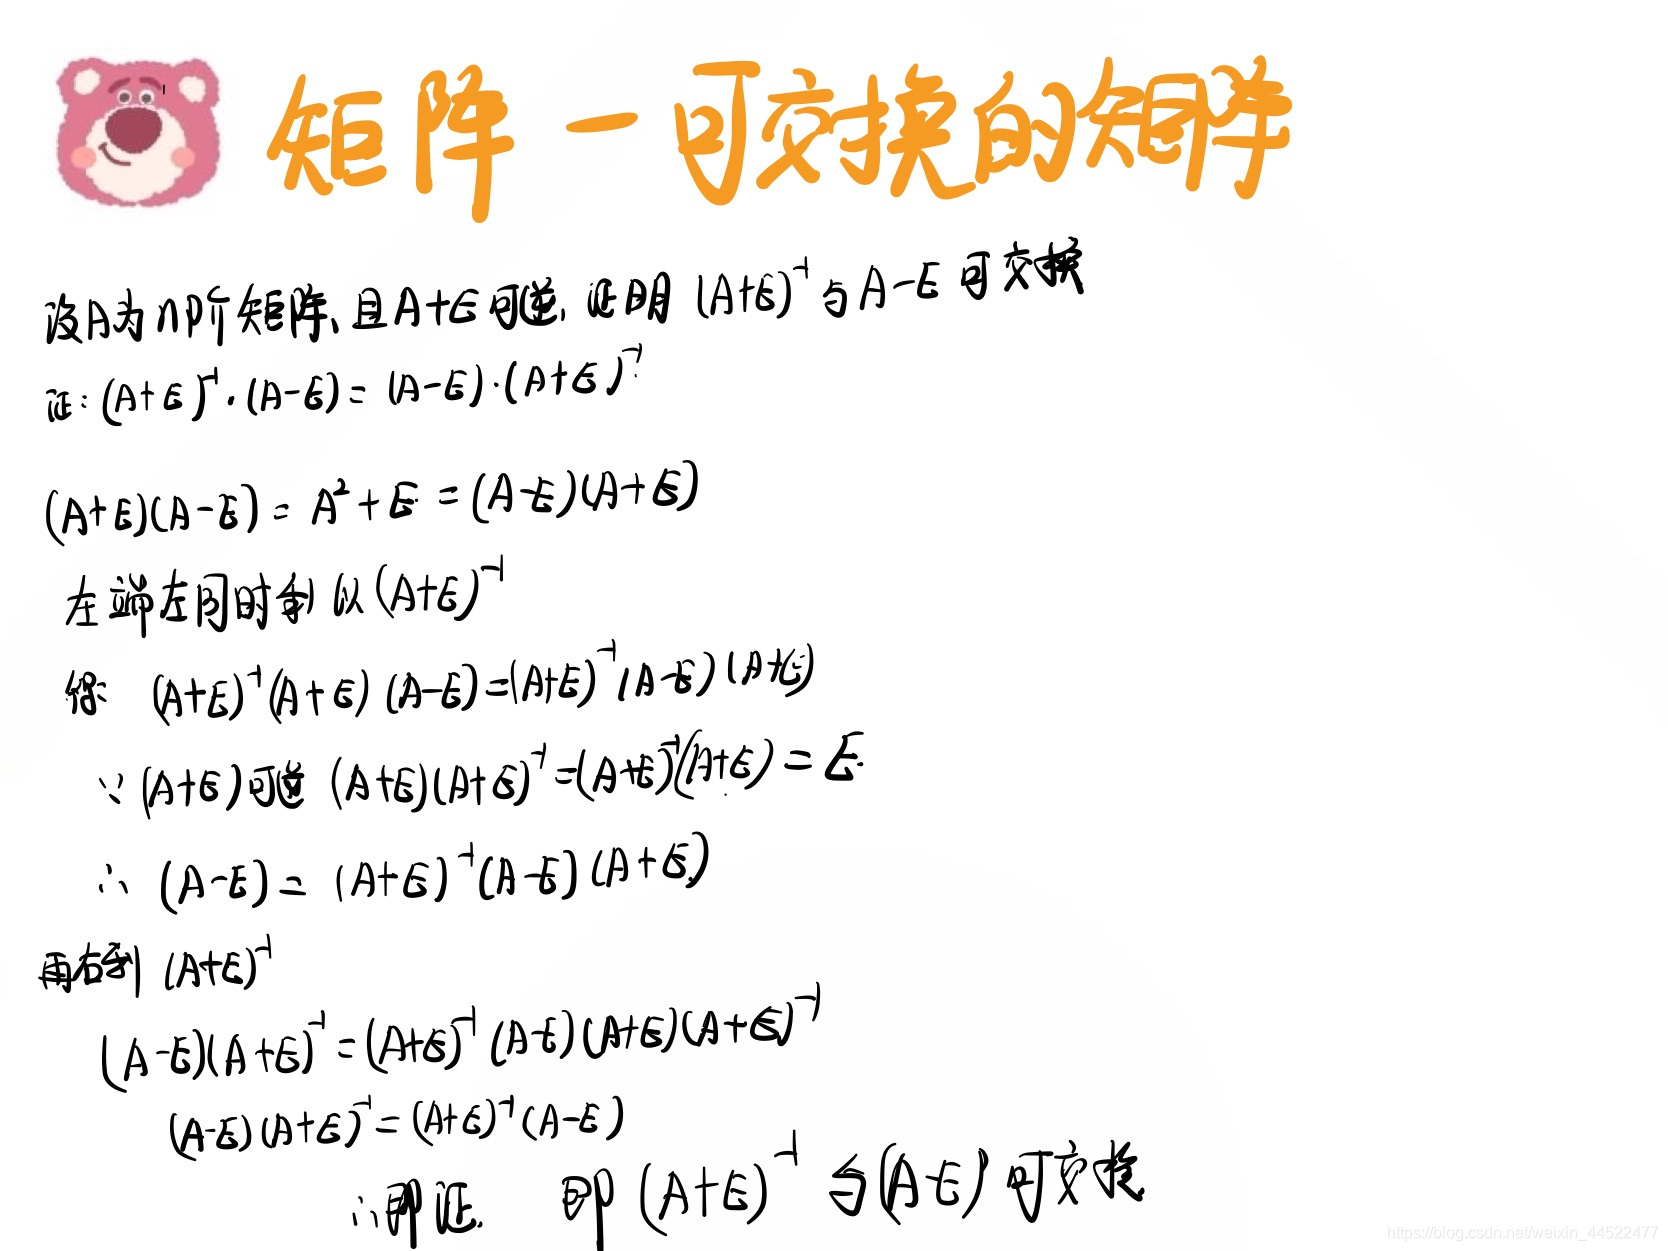 矩阵-可交换的矩阵
设A为n阶矩阵、且A+E可逆,证明 (A+E)⁻¹与A-E可交换
证:(A+E)⁻¹·(A-E)=(A-E)·(A+E)⁻¹
(A+E)(A-E)=A²+E=(A-E)(A+E)
左端左同时乘以(A+E)⁻¹
得: (A+E)⁻¹(A+E)(A-E)=(A+E)⁻¹(A-E)(A+E)
∵(A+E)可逆 (A+E)(A+E)⁻¹=(A+E)⁻¹(A+E)=E
∴ (A-E)=(A+E)⁻¹(A-E)(A+E)
再右乘 (A+E)⁻¹
(A-E)(A+E)⁻¹=(A+E)⁻¹(A-E)(A+E)(A+E)⁻¹
(A-E)(A+E)⁻¹=(A+E)⁻¹(A-E)
∴即证. 即(A+E)⁻¹与(A-E)可交换
https://blog.csdn.net/weixin_44522477